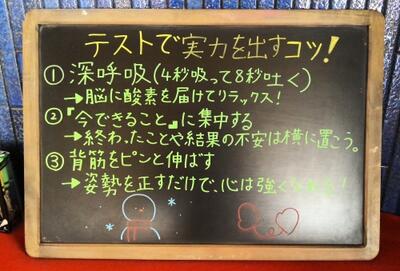 テストで実力を出すコツ!
① 深呼吸(4秒吸って8秒吐く)
→脳に酸素を届けてリラックス!
② 『今できること』に集中する
→終わったことや結果の不安は横に置こう。
③ 背筋をピンと伸ばす
→姿勢を正すだけで、心は強くなれる!